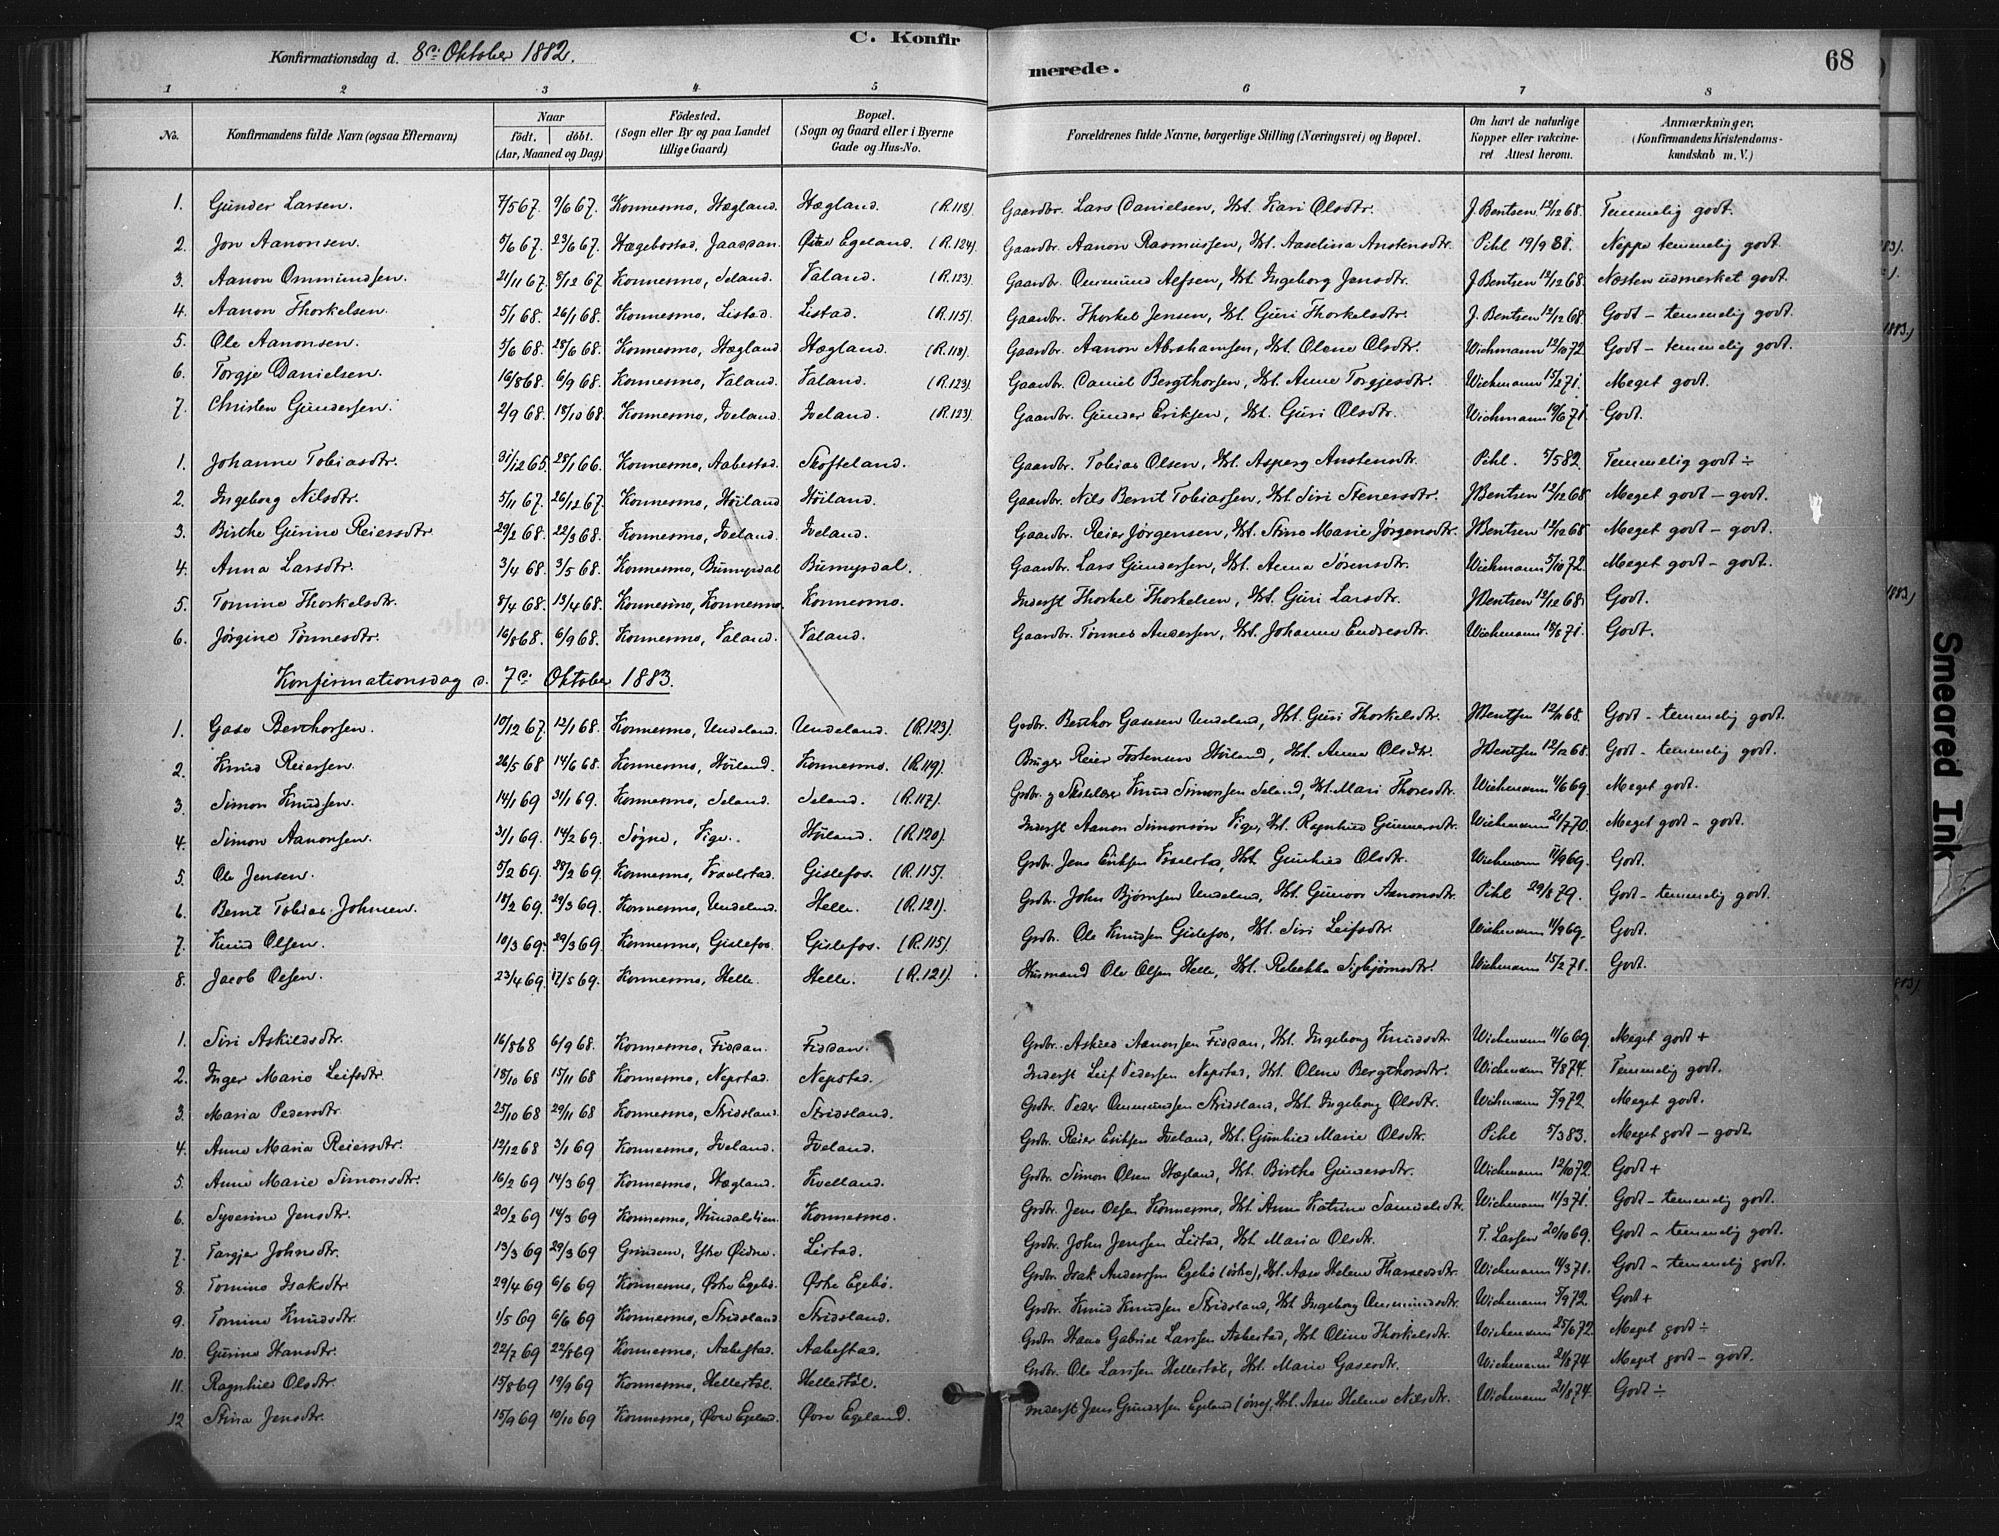 C. Konfirmerede.
68
Konfirmationsdag d. 8de Oktober 1882.
1 2 3 4 5 6 7 8
No. | Konfirmandens fulde Navn (ogsaa Efternavn) | Naar født. døbt. (Aar, Maaned og Dag) | Fødested. (Sogn eller By og paa Landet tillige Gaard) | Bopæl. (Sogn og Gaard eller i Byerne Gade og Hus-No. | Forældrenes fulde Navne, borgerlige Stilling (Næringsvei) og Bopæl. | Om havt de naturlige Kopper eller vakcineret Attest herom. | Anmærkninger. (Konfirmandens Kristendomskundskab m. V.)
1. Gunder Larsen. 7/5 67. 9/6 67. Konnesmo, Hægland. Hægland. (R.118). Gaardbr. Lars Danielsen, Hst. Kari Olsdtr. J. Bentsen 12/12 68. Temmelig godt.
2. Jon Aanonsen. 5/6 67. 23/6 67. Hægebostad, Jaasdan. Østre Egeland. (R.124). Gaardbr. Aanon Rasmussen, Hst. Aaselina Anstensdtr. Pihl 19/9 81. Neppe temmelig godt.
3. Aanon Ommundsen. 21/11 67. 8/12 67. Konnesmo, Seland. Valand. (R.123). Gaardbr. Ommund Alfsen, Hst. Ingeborg Jensdtr. J. Bentsen 12/12 68. Næsten udmerket godt.
4. Aanon Thorkelsen. 5/1 68. 26/1 68. Konnesmo, Listad. Listad. (R.115). Gaardbr. Thorkel Jensen, Hst. Guri Thorkelsdtr. J. Bentsen 12/12 68. Godt - temmelig godt.
5. Ole Aanonsen. 3/6 68. 28/6 68. Konnesmo, Hægland. Hægland. (R.118). Gaardbr. Aanon Abrahamsen, Hst. Olene Olsdtr. Wichmann 12/10 72. Godt - temmelig godt.
6. Torgje Danielsen. 16/8 68. 6/9 68. Konnesmo, Valand. Valand. (R.123) Gaardbr. Daniel Bergthorsen, Hst. Anne Torgjesdtr. Wichmann 15/2 71. Meget godt.
7. Christen Gundersen. 2/9 68. 18/10 68. Konnesmo, Iveland. Iveland. (R.123). Gaardbr. Gunder Eriksen, Hst. Guri Olsdtr. Wichmann 19/6 71. Godt.
1. Johanne Tobiasdtr. 31/12 65. 28/1 66. Konnesmo, Aabestad. Skofteland. Gaardbr. Tobias Olsen, Hst. Asperg Anstensdtr. Pihl. 5/5 82. Temmelig godt ÷
2. Ingeborg Nilsdtr. 5/11 67. 26/12 67. Konnesmo, Høiland. Høiland. Gaardbr. Nils Bernt Tobiassen, Hst. Siri Stenersdtr. J. Bentsen 12/12 68. Meget godt - godt.
3. Birthe Gurine Reiersdtr. 29/2 68. 22/3 68. Konnesmo, Iveland. Iveland. Gaardbr. Reier Jørgensen, Hst. Stine Marie Jørgensdtr. J. Bentsen 12/12 68. Meget godt - godt.
4. Anna Larsdtr. 3/4 68. 3/5 68. Konnesmo, Bumysdal. Bumysdal. Gaardbr. Lars Gundersen, Hst. Anna Sørensdtr. Wichmann 5/10 72. Meget godt - godt.
5. Tomine Thorkelsdtr. 8/4 68. 13/4 68. Konnesmo, Konnesmo. Konnesmo. Inderst Thorkel Thorkelsen, Hst. Guri Larsdtr. J. Bentsen 12/12 68. Godt.
6. Jørgine Tønnesdtr. 16/8 68. 6/9 68. Konnesmo, Valand. Valand. Gaardbr. Tønnes Andersen, Hst. Johanne Endresdtr. Wichmann 18/8 71. Godt.
Konfirmationsdag d. 7de Oktober 1883.
1. Gase Berthorsen. 10/12 67. 12/1 68. Konnesmo, Undeland. Undeland. (R.123). Grdbr. Berthor Gasesen Undeland, Hst. Guri Thorkelsdtr. J. Bentsen 12/12 68. Godt - temmelig godt.
2. Knud Reiersen. 26/5 68. 14/6 68. Konnesmo, Høiland. Konnesmo. (R.119). Bruger Reier Tostensen Høiland, Hst. Anna Olsdtr. J. Bentsen 12/12 68. Godt - temmelig godt.
3. Simon Knudsen. 14/1 69. 31/1 69. Konnesmo, Seland. Seland. (R.117). Grdbr. g Skolelær Knud Simonsen Seland, Hst. Mari Thoresdtr. Wichmann 4/6 69. Meget godt.
4. Simon Aanonsen. 31/1 69. 14/2 69. Søgne, Vige. Høiland. (R.120). Inderst Aanon Simonsøn Vige, Hst. Ragnhild Gunnersdtr. Wichmann 21/7 70. Meget godt - godt.
5. Ole Jensen. 5/2 69. 28/2 69. Konnesmo, Gislefos. (R.115). Grdbr. Jens Eriksen Hst. Gunhild Olsdtr. Wichmann 11/9 69. Godt.
6. Bernt Tobias Johnsen. 18/2 69. 29/3 69. Konnesmo, Undeland. Helle. (R.121). Grdbr. John Bjørnsen Undeland, Hst. Gunvor Aanonsdtr. Pihl 29/8 79. Godt - temmelig godt.
7. Knud Olsen. 10/3 69. 29/3 69. Konnesmo, Gislefos. Gislefos. (R.115). Grdbr. Ole Knudsen Gislefos, Hst. Siri Leifsdtr. Wichmann 11/9 69. Godt.
8. Jacob Olsen. 23/4 69. 17/5 69. Konnesmo, Helle. Helle. (R.121). Husmand Ole Olsen Helle, Hst. Rebekka Sigbjørnsdtr. Wichmann 15/2 71. Godt.
1. Siri Askildsdtr. 16/8 68 6/9 68. Konnesmo, Fiddan. Fiddan. Grdbr. Askild Aanonsen Fiddan, Hst. Ingeborg Knudsdtr. Wichmann 11/6 69. Meget godt +
2. Inger Marie Leifsdtr. 18/10 68 15/11 68 Konnesmo, Nepstad. Nepstad. Inderst Leif Pedersen Nepstad, Hst. Olene Bergthorsdtr. Wichmann 7/8 74. Temmelig godt.
3. Maria Pedersdtr. 25/10 68 29/11 68 Konnesmo, Stridsland. Stridsland. Grdbr. Peder Ommundsen Stridsland, Hst. Ingeborg Olsdtr. Wichmann 7/9 72. Meget godt.
4. Anne Maria Reiersdtr. 12/12 68 3/1 69 Konnesmo, Iveland. Iveland. Grdbr. Reier Eriksen Iveland, Hst. Gunhild Marie Olsdtr. Pihl 5/3 83. Meget godt - godt.
5. Anne Marie Simonsdtr. 16/2 69 14/3 69 Konnesmo, Hægland. Kvelland. Grdbr. Simon Olsen Hægland, Hst. Birthe Gundersdtr. Wichmann 12/10 72. Godt +
6. Syverine Jensdtr. 20/2 69 14/3 69 Konnesmo, Konnesmo. Grdbr. Jens Olsen Konnesmo, Hst. Anne Katrine Samuelsdtr. Wichmann 11/3 71. Godt - temmelig godt.
7. Targjer Johnsdtr. 13/3 69 29/3 69 Grindem, Ytre Øidne. Listad. Grdbr. John Jenssen Listad, Hst. Maria Olsdtr. T. Larsen 20/10 69. Godt - temmelig godt.
8. Tomine Isaksdtr. 29/4 69 6/6 69 Konnesmo, Østre Egebø. Østre Egebø. Grdbr. Isak Anderssen Egebø (østre), Hst. Aase Helene Wichmann 11/3 71. Godt - temmelig godt.
9. Tomine Knudsdtr. 1/5 69 6/6 69 Konnesmo, Stridsland. Stridsland. Grdbr. Knud Knudsen Stridsland, Hst. Ingeborg Ommundsdtr. Wichmann 7/9 72. Godt +
10. Gurine Hansdtr. 22/7 69 22/8 69 Konnesmo, Aabestad. Aabestad. Grdbr. Hans Gabriel Larsen Aabestad, Hst. Oline Thorkelsdtr. Wichmann 25/6 72. Meget godt ÷
11. Ragnhild Olsdtr. 15/8 69 19/9 69 Konnesmo, Hellestøl. Hellestøl. Grdbr. Ole Larssen Hellestøl, Hst. Marie Gasesdtr. Wichmann 21/8 74 Meget godt - godt.
12 Stina Jensdtr. 15/9 69 10/10 69 Konnesmo, Øvre Egeland. Øvre Egeland. Inderst Jens Gundersen Egeland (øvre), Hst. Aase Helene Nilsdtr. Wichmann 21/8 74. Godt ÷
Smeared Ink